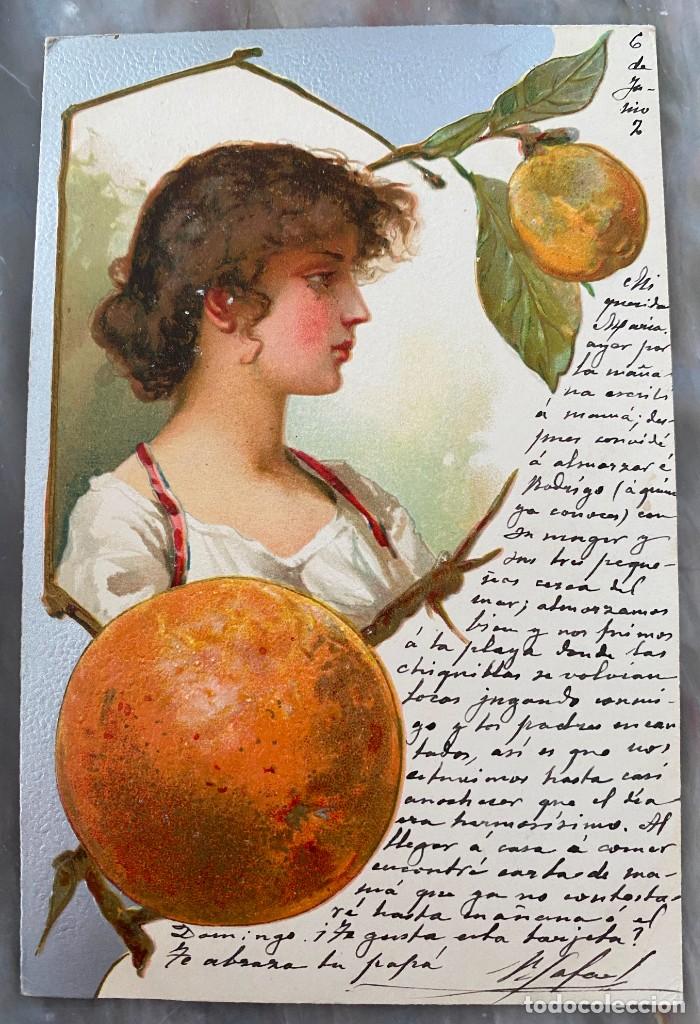 6
de
Ju-
nio
2
Mi
querida
María.
ayer por
la maña-
na escribí
á mamá; des-
pues convidé
á almorzar á
Rodrigo (á quien
ya conoces) con
su muger y
sus tres peque-
ñas cerca del
mar; almorzamos
bien y nos fuimos
á la playa donde las
chiquillas se volvian
locas jugando conmi-
go y los padres encan
tados, así es que nos
estuvimos hasta casi
anochecer que el día
era hermosísimo. Al
llegar á casa á comer
encontré carta de ma-
má que ya no contesta-
ré hasta mañana ó el
Domingo. ¿Te gusta esta tarjeta?
Te abraza tu papá
Rafael
todocoleccion